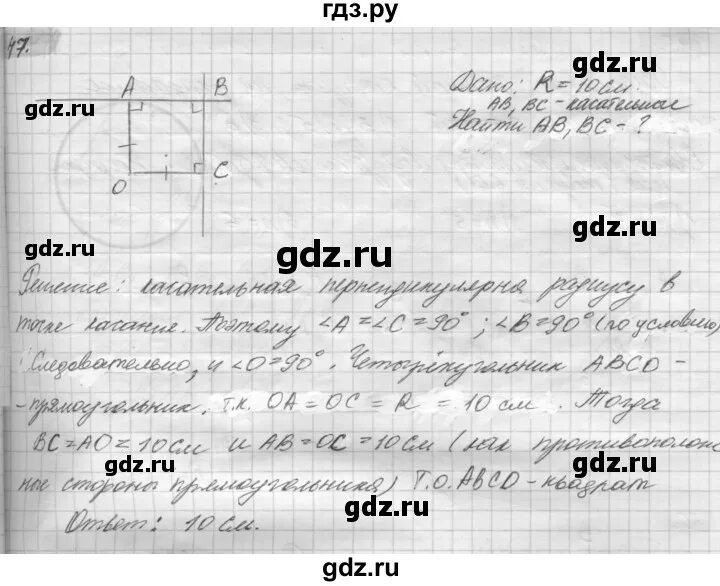 гдз.ру
47.
gdz.ru
gdz.ru
gdz.ru
A
B
Дано: R = 10 см.
AB, BC - касательные
Найти AB, BC - ?
O
C
gdz.ru
gdz.ru
gdz.ru
Решение: касательная перпендикулярна радиусу в
точке касание. Поэтому ∠A = ∠C = 90°; ∠B = 90° (по условию)
Следовательно, и ∠O = 90°. Четырёхугольник ABCO -
gdz.ru
gdz.ru
- прямоугольник, т.к. OA = OC = R = 10 см. Тогда
BC = AO = 10 см и AB = OC = 10 см (как противополож
ные стороны прямоугольника) Т.О. ABCO - квадрат
gdz.ru
gdz.ru
Ответ: 10 см.
gdz.ru